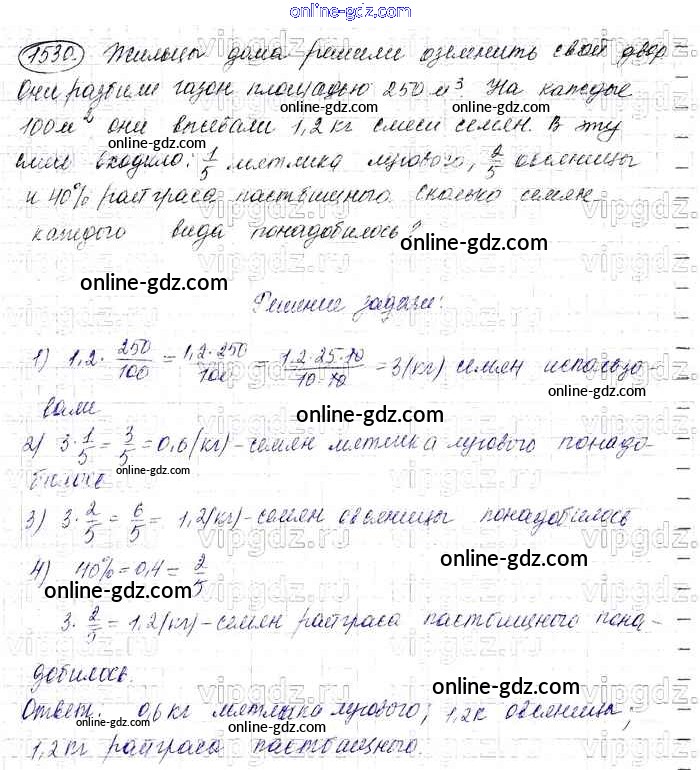 online-gdz.com
1530. Жильцы дома решили озеленить свой двор
Они разбили газон площадью 250 м³. На каждые
online-gdz.com online-gdz.com
100 м² они высевали 1,2 кг смеси семян. В эту
смесь входило: 1/5 мятлика лугового, 2/5 овсяницы
online-gdz.com
и 40% райграса пастбищного. Сколько семян
каждого вида понадобилось?
online-gdz.com
online-gdz.com
Решение задачи:
1) 1,2 · 250/100 = 1,2·250/100 = 1,2·25·10/10·10 = 3 (кг) семян использо-
вали
online-gdz.com
2) 3 · 1/5 = 3/5 = 0,6 (кг) – семян мятлика лугового понадо-
билось
online-gdz.com online-gdz.com
3) 3 · 2/5 = 6/5 = 1,2 (кг) – семян овсяницы понадобилось
4) 40% = 0,4 = 2/5
online-gdz.com online-gdz.com
3 · 2/5 = 1,2 (кг) – семян райграса пастбищного пона-
добилось.
online-gdz.com
Ответ: 0,6 кг мятлика лугового; 1,2к овсяницы;
online-gdz.com
1,2 кг райграса пастбищного.
online-gdz.com
vipgdz.ru